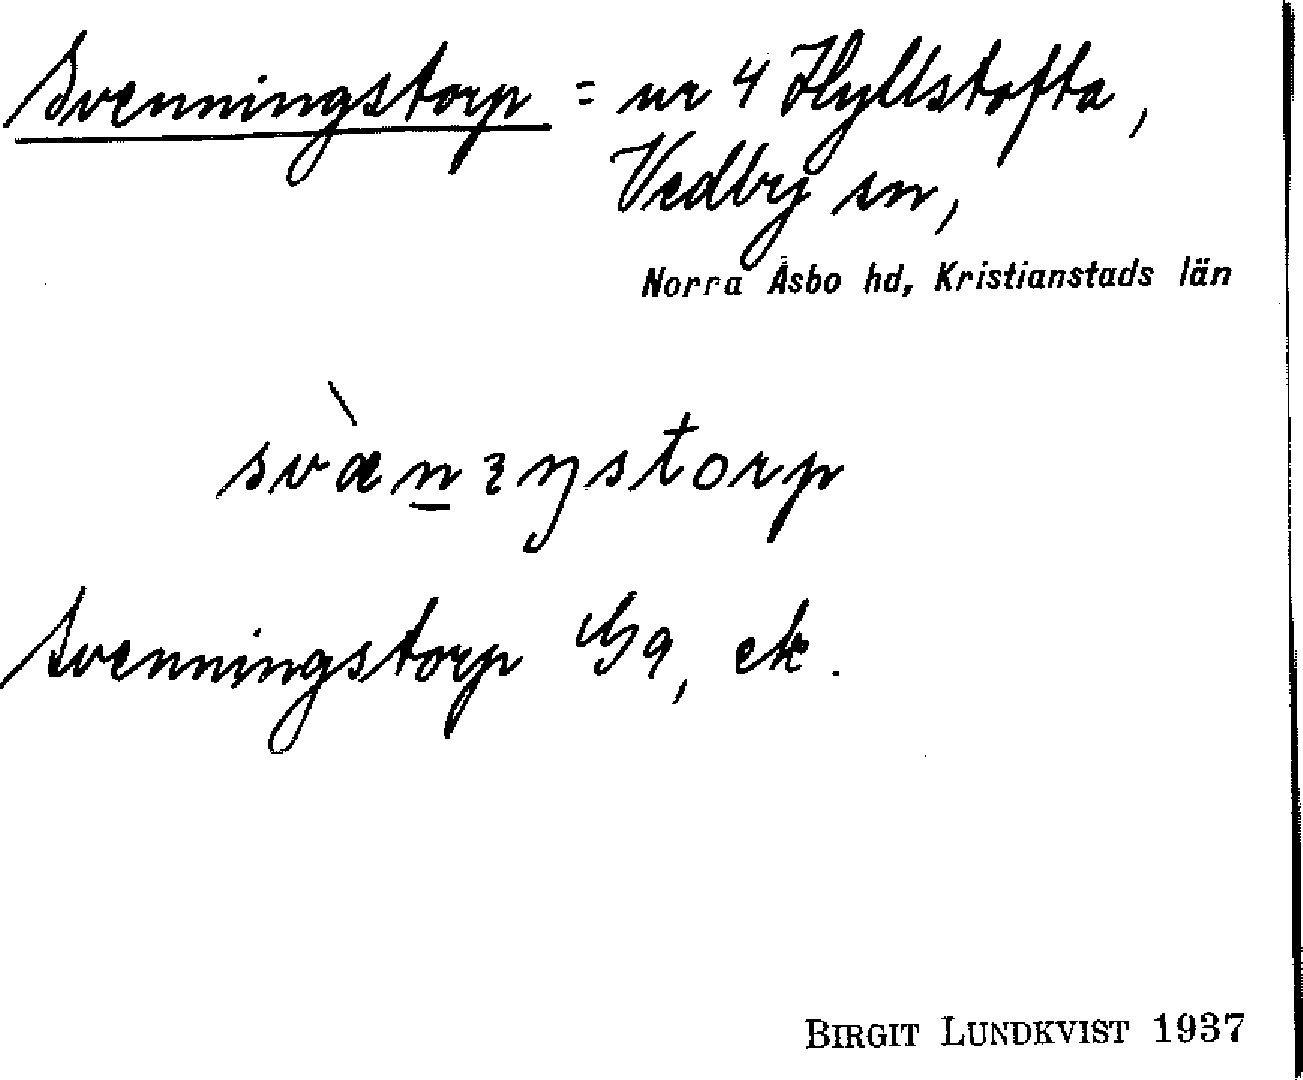 Svenningstorp = nr 4 Hyllstofta,
Vedby sn,
Norra Åsbo hd, Kristianstads län
svæ̀n̲ɪŋstorp
Svenningstorp Gg, ek.
BIRGIT LUNDKVIST 1937